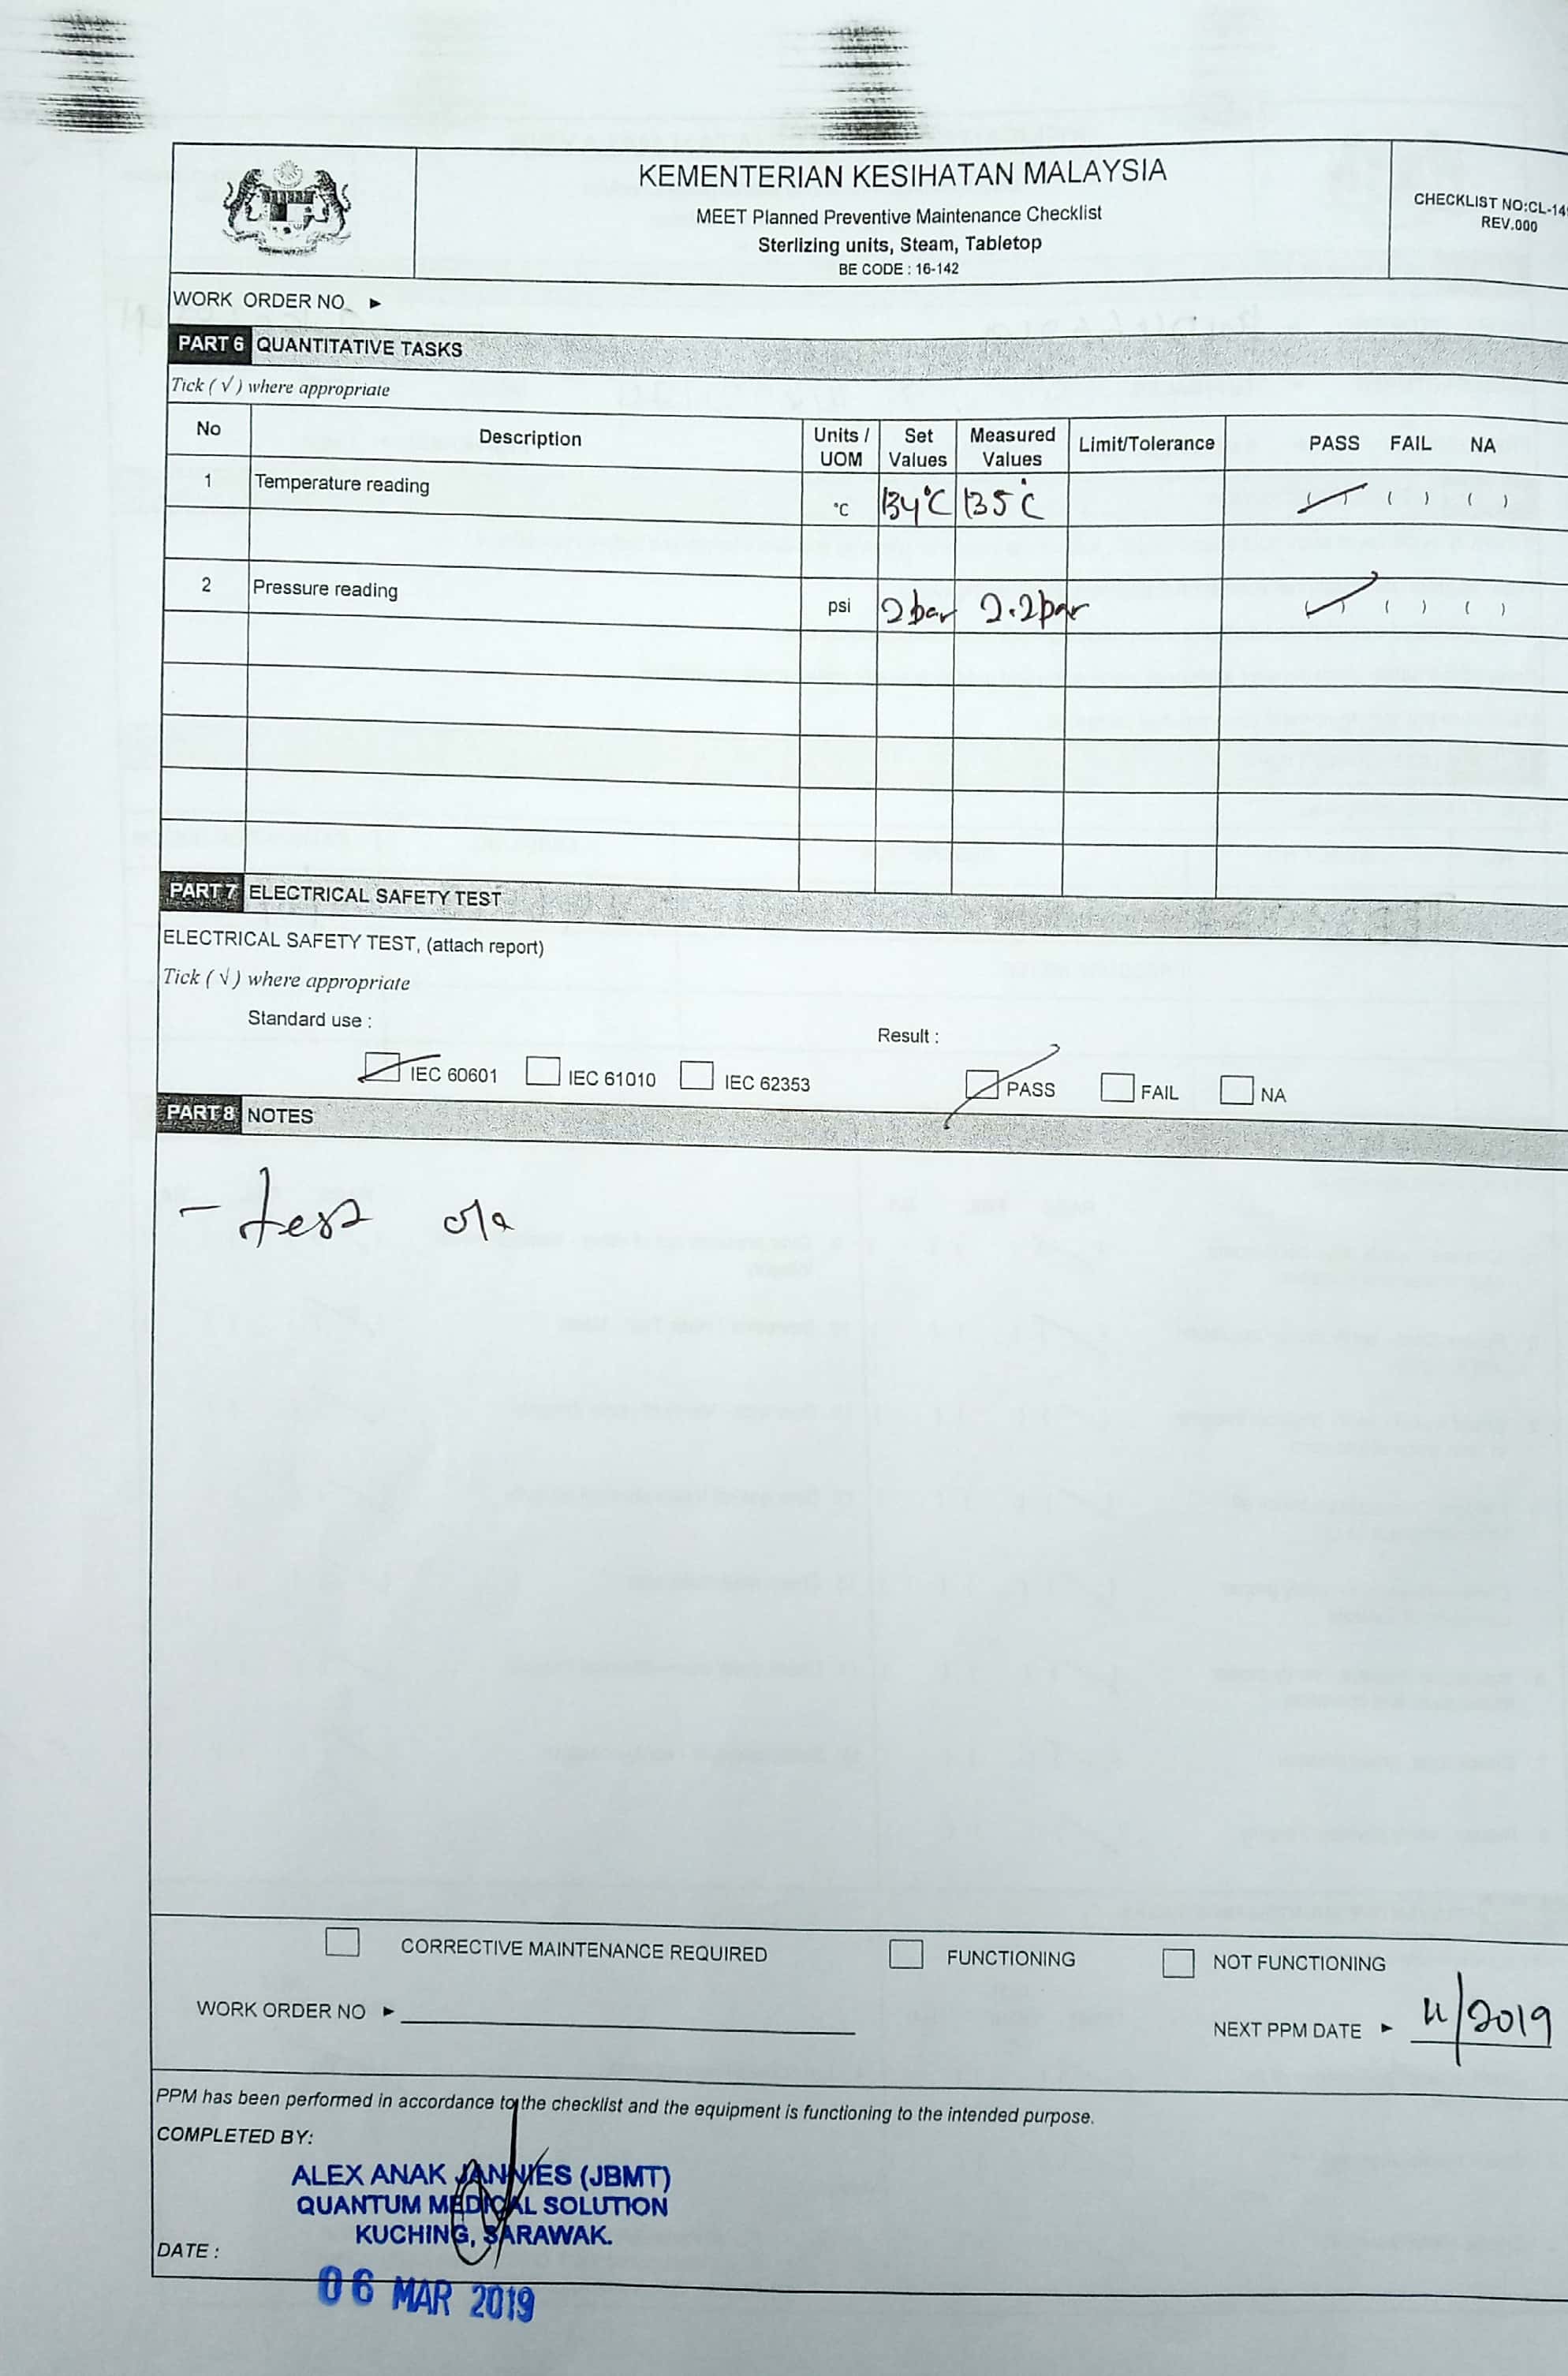 KEMENTERIAN KESIHATAN MALAYSIA
MEET Planned Preventive Maintenance Checklist
Sterlizing units, Steam, Tabletop
BE CODE : 16-142
CHECKLIST NO:CL-14
REV.000
WORK ORDER NO ►
PART 6 QUANTITATIVE TASKS
Tick ( √ ) where appropriate
No Description Units / UOM Set Values Measured Values Limit/Tolerance PASS FAIL NA
1 Temperature reading °C 134°C 135°C ( ) ( ) ( )
2 Pressure reading psi 2bar 2.2bar ( ) ( ) ( )
PART 7 ELECTRICAL SAFETY TEST
ELECTRICAL SAFETY TEST, (attach report)
Tick ( √ ) where appropriate
Standard use : Result :
IEC 60601 IEC 61010 IEC 62353 PASS FAIL NA
PART 8 NOTES
- test
CORRECTIVE MAINTENANCE REQUIRED FUNCTIONING NOT FUNCTIONING
WORK ORDER NO ► NEXT PPM DATE ► /2019
PPM has been performed in accordance to the checklist and the equipment is functioning to the intended purpose.
COMPLETED BY:
ALEX ANAK JANNIES (JBMT)
QUANTUM MEDICAL SOLUTION
KUCHING, SARAWAK.
DATE :
06 MAR 2019